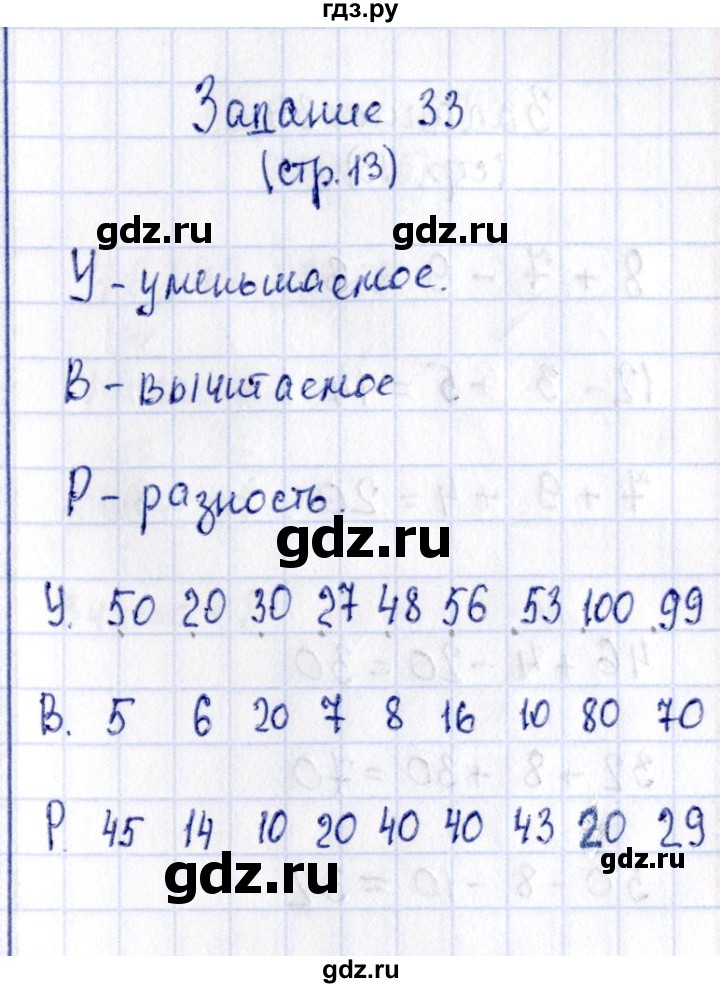 гдз.ру
Задание 33
(стр.13)
gdz.ru gdz.ru
У - уменьшаемое.
В - вычитаемое
Р - разность.
gdz.ru
У. 50 20 30 27 48 56 53 100 99
В. 5 6 20 7 8 16 10 80 70
Р. 45 14 10 20 40 40 43 20 29
gdz.ru
gdz.ru
gdz.ru